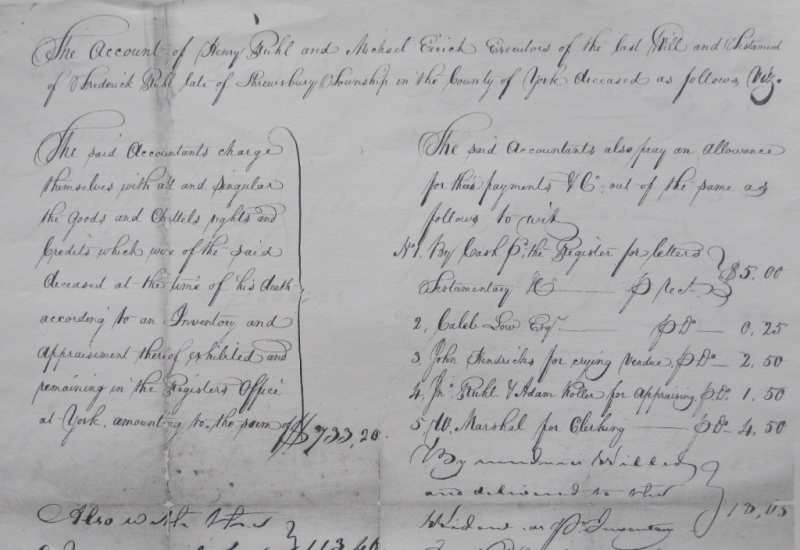 The Account of Henry Ruhl and Michael Eirich Executors of the last Will and Testament
of Frederick Ruhl late of Shrewsbury Township in the County of York deceased as follows, Viz.
The said Accountants charge
themselves with all and singular
the Goods and Chattels rights and
Credits which were of the said
deceased at the time of his death
according to an Inventory and
appraisement thereof exhibited and
remaining in the Registers Office
at York, amounting to, the sum of $733,20.
Also with the
113,40
The said Accountants also pray an allowance
for their payments &C. out of the same as
follows to wit
No. 1. By Cash pd. the Register for letters
Testamentary &C — p rect. $5.00
2, Caleb Low Esqr. — p Do — 0.25
3, John Hendricks for crying Vendue, p Do — 2,50
4, Jno. Ruhl & Adam Koller for appraising, p Do. 1,50
5, W. Marshal for Clerking — p Do — 4,50
By Willed
and delivered to the
Widow as pr. Inventory